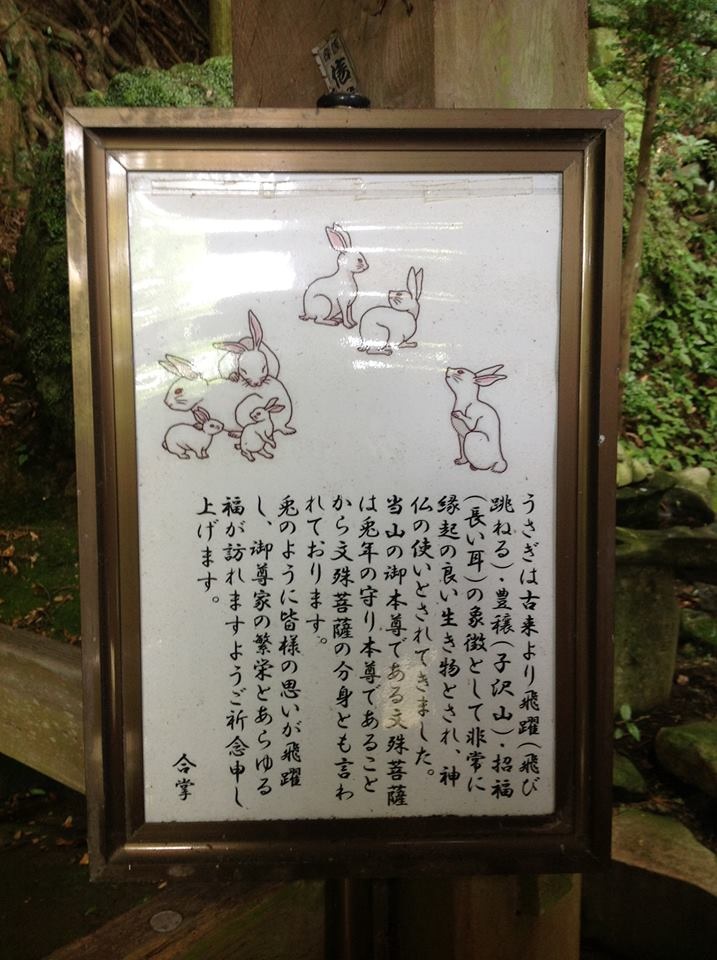 うさぎは古来より飛躍(飛び
跳ねる)・豊穣(子沢山)・招福
(長い耳)の象徴として非常に
縁起の良い生き物とされ、神
仏の使いとされてきました。
当山の御本尊である文殊菩薩
は兎年の守り本尊であること
から文殊菩薩の分身とも言わ
れております。
兎のように皆様の思いが飛躍
し、御尊家の繁栄とあらゆる
福が訪れますようご祈念申し
上げます。
合掌